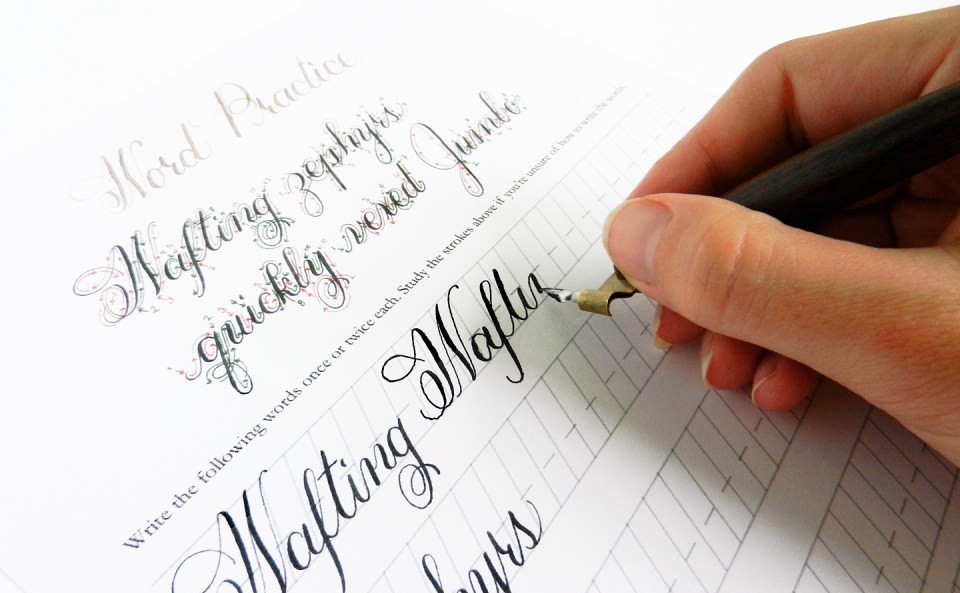 Word Practice
Wafting zephyrs
quickly vexed Jumbo.
Write the following words once or twice each. Study the strokes above if you're unsure of how to write the words.
Wafting Waftin
hyrs